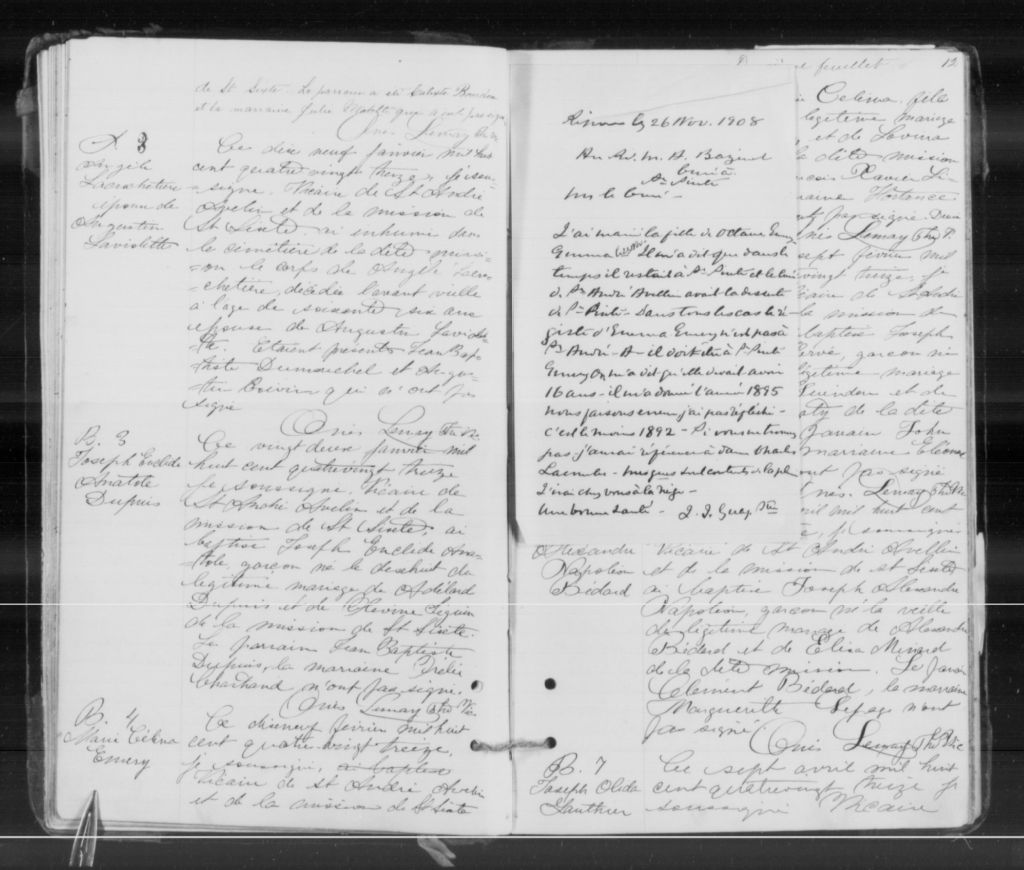 de St Sixte. Le parrain a été Calixte
et la marraine Julie qui n'ont pas signé
Onés. Lemay Ptre Vic.
Angèle
Lacochetière
épouse de
Augustin
Laviolette
Ce dix neuf janvier mil huit
cent quatre vingt treize, je sous-
signé, Vicaire de St André
Avelin et de la mission de
St Sixte, ai inhumé dans
le cimetière de la dite miss-
ion le corps de Angèle Laco-
chetière, décédée l'avant veille
à l'age de soixante six ans
épouse de Augustin Laviolet-
te. Etaient présents Jean Bap-
tiste Dumouchel et Augus-
tin qui n'ont pas
signé
Onés Lemay Ptre Vic.
B. 3
Joseph Euclide
Anatole
Dupuis
Ce vingt deux janvier mil
huit cent quatrevingt treize
je soussigné, Vicaire de
St André Avelin et de la
mission de St Sixte, ai
baptisé Joseph Euclide Ana-
tole, garçon né le dixhuit du
légitime mariage de Adélard
Dupuis et de Seguin
de la mission de St Sixte.
Le parrain Jean Baptiste
Dupuis, la marraine
Charland n'ont pas signé.
Onés Lemay Ptre Vic
B. 4
Marie Célina
Emery
Ce dixneuf février mil huit
cent quatre-vingt treize,
je soussigné, ai baptisé
Vicaire de St André Avelin
et de la mission de St Sixte
feuillet 12
26 Nov. 1908
Au Rv. M. A.
Curé à
St Sixte
Mr le Curé -
J'ai marié la fille de Octave Emery
Emma Il m'a dit que dans le
temps il restait à St Sixte et le Curé
de St André Avellin avait la desserte
de St Sixte - Dans tous les cas le ré-
gistre d'Emma Emery n'est pas à
St André - A - il doit être à St Sixte
Emery m'a dit qu'elle devait avoir
16 ans - il m'a donné l'année 1895
nous faisons erreur j'ai pas réfléchi -
c'est le moins 1892 - Si vous ne trouvez
pas j'aurai à dam Charles
J'irai chez vous à la neige -
Une bonne santé - J. J. Ptre
Celina, fille
légitime mariage
et de
la dite mission
Xavier
pas signé
Lemay Ptre V.
sept février mil
vingt treize, je
de St André
la mission de
baptisé Joseph
garçon né
légitime mariage
et de
de la dite
parrain John
marraine Eléonore
ont pas signé
Onés. Lemay Ptre Vic
mil huit cent
soussigné
Alexandre
Napoléon
Bédard
Vicaire de St André Avellin
et de la mission de St Sixte
ai baptisé Joseph Alexandre
Napoléon, garçon né la veille
du légitime mariage de Alexandre
Bédard et de Eliza Ménard
de la dite mission. Le parrain
Clément Bédard, la marraine
Marguerite Lepage n'ont
pas signé
Onés Lemay Ptre Vic
B. 7
Joseph Olida
Gauthier
Ce sept avril mil huit
cent quatrevingt treize je
soussigné Vicaire